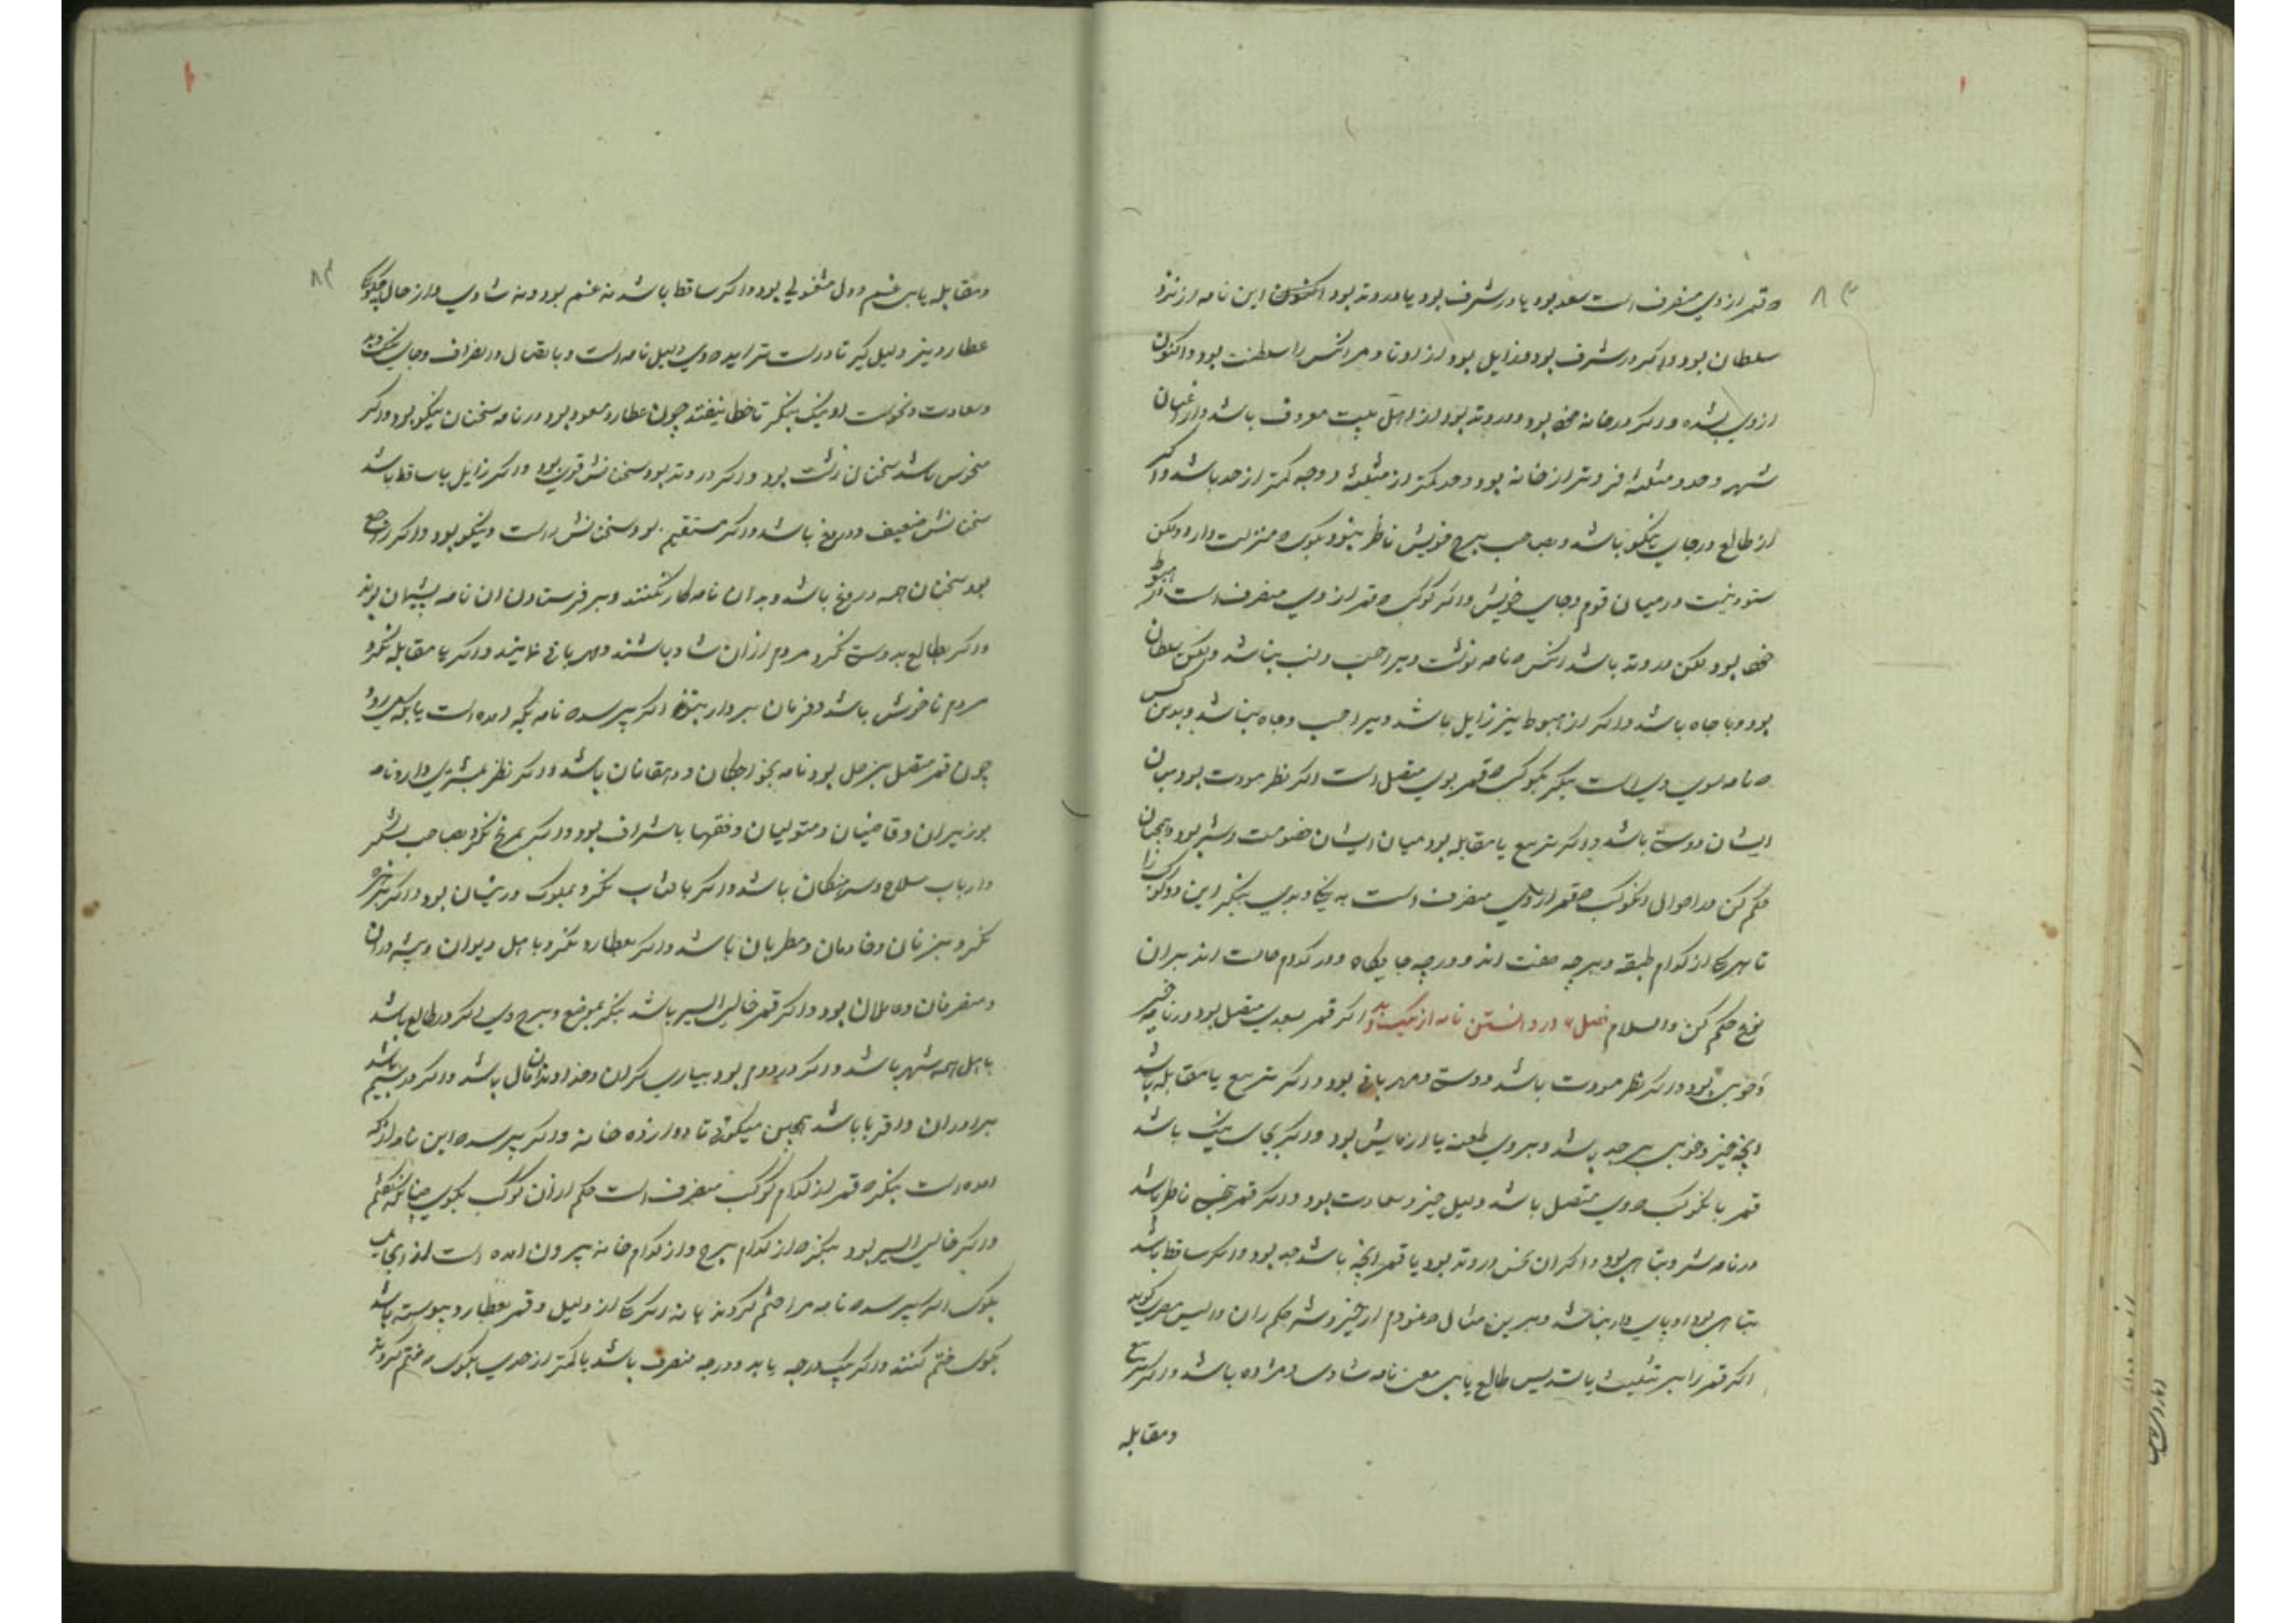 ۸۳
که قمر از وی منصرف است سعد بود یا در شرف بود یا در وتد بود آنکس که این نامه از نزد
سلطان بود و اگر در شرف بود و زایل بود از اوتاد مر آنکس را سلطنت بود و اکنون
از وی بشده و اگر در خانه بود و در وتد بود از اهل بیت معروف باشد و از اعیان
شهر و حد و مثلثه فروتر از خانه بود و حد کمتر از مثلثه و وجه کمتر از حد باشد و اگر
از طالع در جای نیکو باشد و بصاحب برج خویش ناظر نبود بگوی که منزلت دارد ولکن
ستوده نیست در میان قوم و جای خویش و اگر کوکب که قمر از وی منصرف است اگر هبوط
بود لکن در وتد باشد آنکس که نامه نوشت ویرا حسب و نسب نباشد ولکن سلطان
بود و با جاه باشد و اگر از هبوط نیز زایل باشد ویرا حسب و جاه نباشد و بدین کس
که نامه سوی وی است بنگر بکوکب که قمر بوی متصل است اگر نظر مودت بود میان
ایشان دوستی باشد و اگر تربیع یا مقابله بود میان ایشان خصومت و شر بود و همچنان
حکم کن در احوال آن کوکب که قمر از وی منصرف است به نیکی و بدی بنگر این دو کوکب را
تا هر یکی از کدام طبقه و بر چه صفت اند و در چه جایگاه و در کدام حالت اند بر آن
نوع حکم کن والسلام فصل در دانستن نامه از نیک و بد اگر قمر بسعدی متصل بود در نامه خیر
و خوبی بود و اگر نظر مودت باشد دوستی و مهربانی بود و اگر تربیع یا مقابله باشد
آنچه خیر و خوبی بر جد باشد و بر وی طعنه یا آزمایش بود و اگر بجای نیک باشد
قمر با آن کوکب که وی متصل باشد دلیل خیر و سعادت بود و اگر قمر بنحس ناظر باشد
در نامه شر و تباهی بود و اگر آن نحس در وتد بود یا قمر آنچه باشد جد بود و اگر ساقط باشد
تباهی بود و پایدار نباشد و برین مثال که نمودم از خیر و شر حکم ران
اگر قمر را بر تثلیث یا تسدیس طالع یابی معنی نامه شادی و مژده باشد و اگر تربیع
ومقابله
۸۴
ومقابله یابی غم و دل مشغولی بود و اگر ساقط باشد نه غم بود و نه شادی و از حال
عطارد نیز دلیل گیر تا درست تر آید که وی دلیل نامه است و باتصال و انصراف و جای نیک و بد
و سعادت و نحوست او نیک بنگر تا خطا نیفتد چون عطارد مسعود بود در نامه سخنان نیکو بود و اگر
منحوس باشد سخنان زشت بود و اگر در وتد بود سخنانش قوی بود و اگر زایل یا ساقط باشد
سخنانش ضعیف و دروغ باشد و اگر مستقیم بود سخنانش راست و نیکو بود و اگر راجع
بود سخنان همه دروغ باشد و بدان نامه کار نکنند و بر فرستادن آن نامه پشیمان بوند
و اگر بطالع بدوستی نگرد مردم از آن شاد باشند و مهربانی نمایند و اگر با مقابله نگرد
مردم ناخوش باشد و فرمان بردار نبوند اگر پرسد که نامه بکه آمده است یا بکه میرود
چون قمر متصل بزحل بود نامه بخواجگان و دهقانان باشد و اگر نظر بمشتری دارد نامه
بوزیران و قاضیان و متولیان و فقها با شراف بود و اگر بمریخ نگرد بصاحب لشکر
و ارباب سلاح و سرهنگان باشد و اگر بآفتاب نگرد بملوک و رئیسان بود و اگر بزهره
نگرد بزنان و خادمان و مطربان باشد و اگر بعطارد نگرد باهل دیوان و پیشه وران
و متصرفان و عاملان بود و اگر قمر خالی السیر باشد بنگر بموضع و برج وی اگر در طالع باشد
باهل همه شهر باشد و اگر در دوم بود بیاری گران و خداوندان مال باشد و اگر در سیم باشد
برادران و اقربا باشد همچنین میگوی تا دوازده خانه و اگر پرسد که این نامه از که
آمده است بنگر که قمر از کدام کوکب منصرف است حکم از آن کوکب بگوی چنانکه گفتم
و اگر خالی السیر بود بنگر که از کدام برج و از کدام خانه بیرون آمده است از آنجا
بگوی اگر پرسد که نامه را ختم کردند یا نه اگر یکی از دلیل و قمر بعطارد پیوسته باشد
بگوی ختم کنند و اگر یک درجه یا بد و درجه منصرف باشد یا کمتر از حدی بگوی که ختم کردند